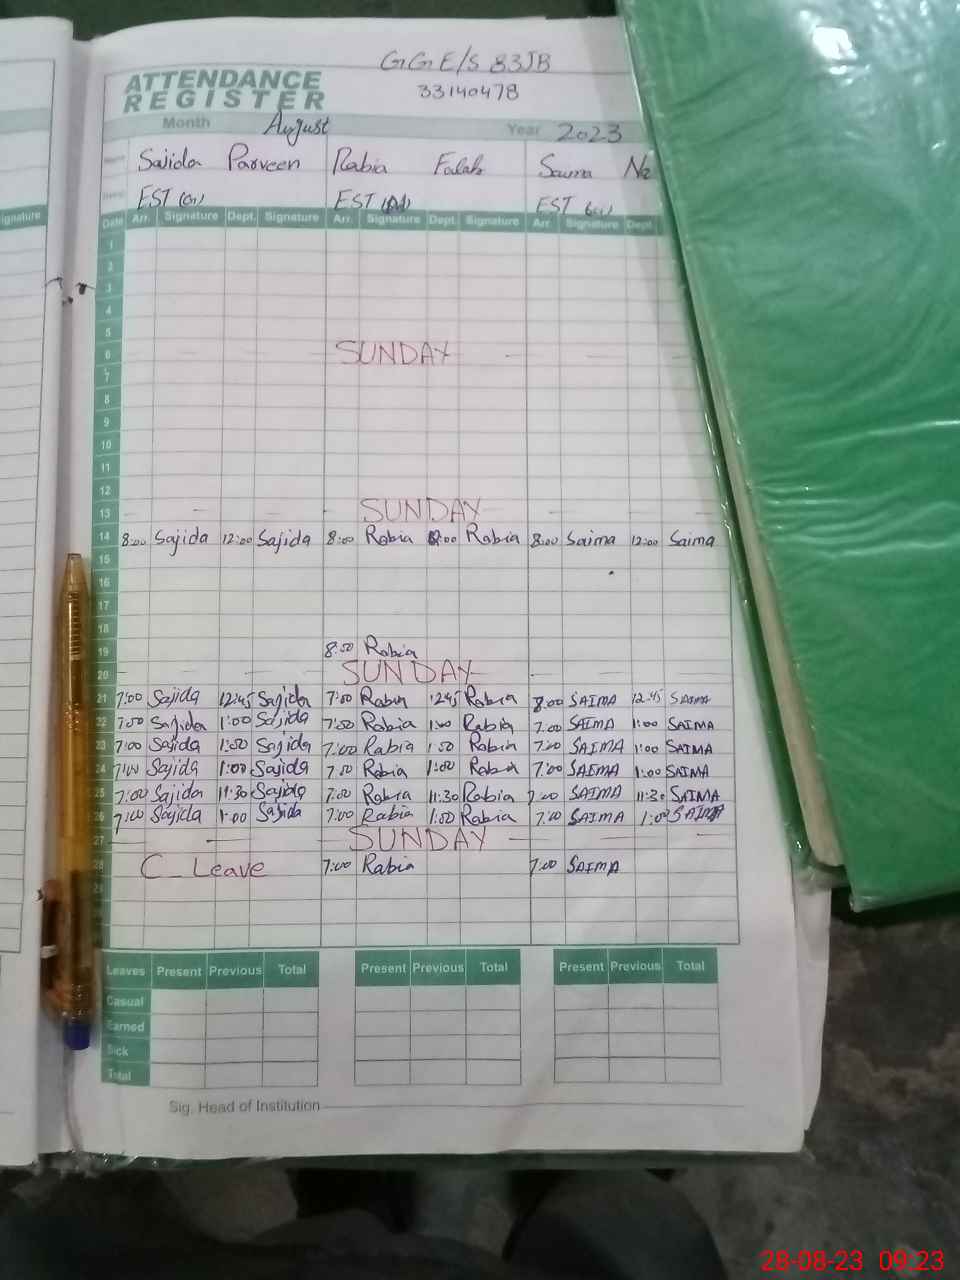 GGE/S 83JB
ATTENDANCE
REGISTER
33140478
Month August Year 2023
Name Sajida Parveen Rabia Falak Saima
EST EST EST
Date Arr. Signature Dept. Signature Arr. Signature Dept. Signature Arr. Signature Dept.
ignature
1
2
3
4
5
6 SUNDAY
7
8
9
10
11
12
13 SUNDAY
14 8:00 Sajida 12:00 Sajida 8:00 Rabia Rabia 8:00 Saima 12:00 Saima
15
16
17
18
19 8:50 Rabia
20 SUNDAY
21 7:00 Sajida 12:45 Sajida 7:00 Rabia 12:45 Rabia 8:00 SAIMA 12:45 SAIMA
22 7:00 Sajida 1:00 Sajida 7:00 Rabia 1:00 Rabia 7:00 SAIMA 1:00 SAIMA
23 7:00 Sajida 1:00 Sajida 7:00 Rabia 1:00 Rabia 7:00 SAIMA 1:00 SAIMA
24 7:00 Sajida 1:00 Sajida 7:00 Rabia 1:00 Rabia 7:00 SAIMA 1:00 SAIMA
25 7:00 Sajida 11:30 Sajida 7:00 Rabia 11:30 Rabia 7:00 SAIMA 11:30 SAIMA
26 7:00 Sajida 1:00 Sajida 7:00 Rabia 1:00 Rabia 7:00 SAIMA 1:00 SAIMA
27 SUNDAY
28 C_Leave 7:00 Rabia 7:00 SAIMA
29
Leaves Present Previous Total Present Previous Total Present Previous Total
Casual
Earned
Sick
Total
Sig. Head of Institution
28-08-23 09:23